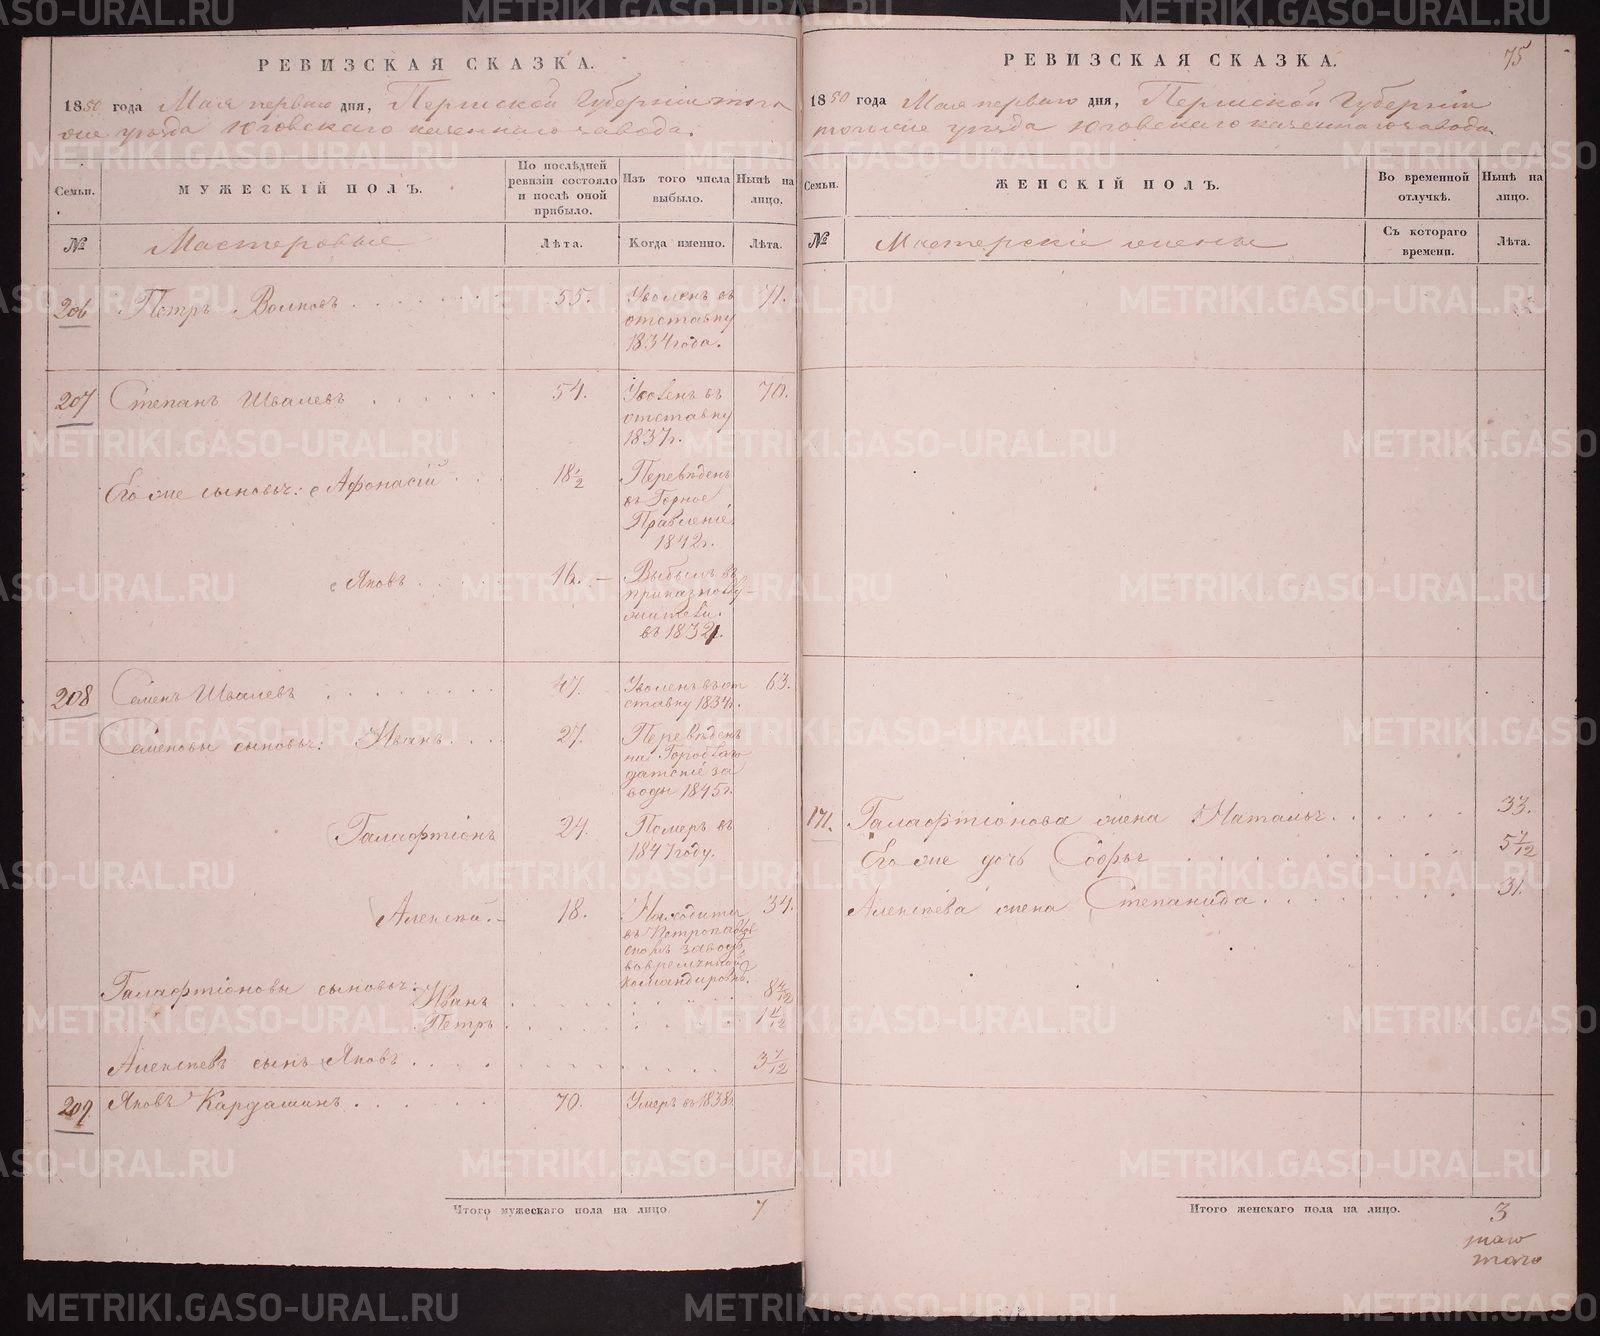 РЕВИЗСКАЯ СКАЗКА.
1850 года Мая перваго дня, Пермской Губернии того
же уезда Юговскаго казеннаго завода.
Семьи.
МУЖЕСКІЙ ПОЛЪ.
По послѣдней ревизіи состояло и послѣ оной прибыло.
Изъ того числа выбыло.
Нынѣ на лицо.
№
Мастеровые
Лѣта.
Когда именно.
Лѣта.
206
Петръ Волковъ
55.
Уволенъ въ
отставку
1834 года.
71.
207
Степанъ Швалевъ
54.
Уволенъ въ
отставку
1837г.
70.
Его же сыновья: Афонасій
18 1/2
Переведенъ
въ Горное
Правленіе
1842г.
Яковъ
16.
Выбылъ въ
приказнослу-
жители
въ 1832г.
208
Семенъ Швалевъ
47.
Уволенъ въ от
ставку 1834г.
63.
Семеновы сыновья: Иванъ
27.
Переведенъ
на Гороблаго
датскіе за
воды 1845г.
Галактіонъ
24.
Померъ въ
1847 году.
Алексей
18.
Находится
въ Петропавлов
скомъ заводѣ
во временной
командировкѣ.
34.
Галактіоновы сыновья: Иванъ
8 4/12
Петръ
1 11/12
Алексеевъ сынъ Яковъ
3 7/12
209
Яковъ Кардашинъ
70.
Умеръ въ 1838г.
Итого мужескаго пола на лицо
7
75
РЕВИЗСКАЯ СКАЗКА.
1850 года Мая перваго дня, Пермской Губерніи
тогоже уезда Юговскаго казеннаго завода
Семьи.
ЖЕНСКІЙ ПОЛЪ.
Во временной отлучкѣ.
Нынѣ на лицо.
№
Мастерскіе жены
Съ котораго времени.
Лѣта.
171.
Галактіонова жена Наталья
33.
Его же дочь Софья
5 7/12
Алексеева жена Степанида
31.
Итого женскаго пола на лицо.
3
METRIKI.GASO-URAL.RU